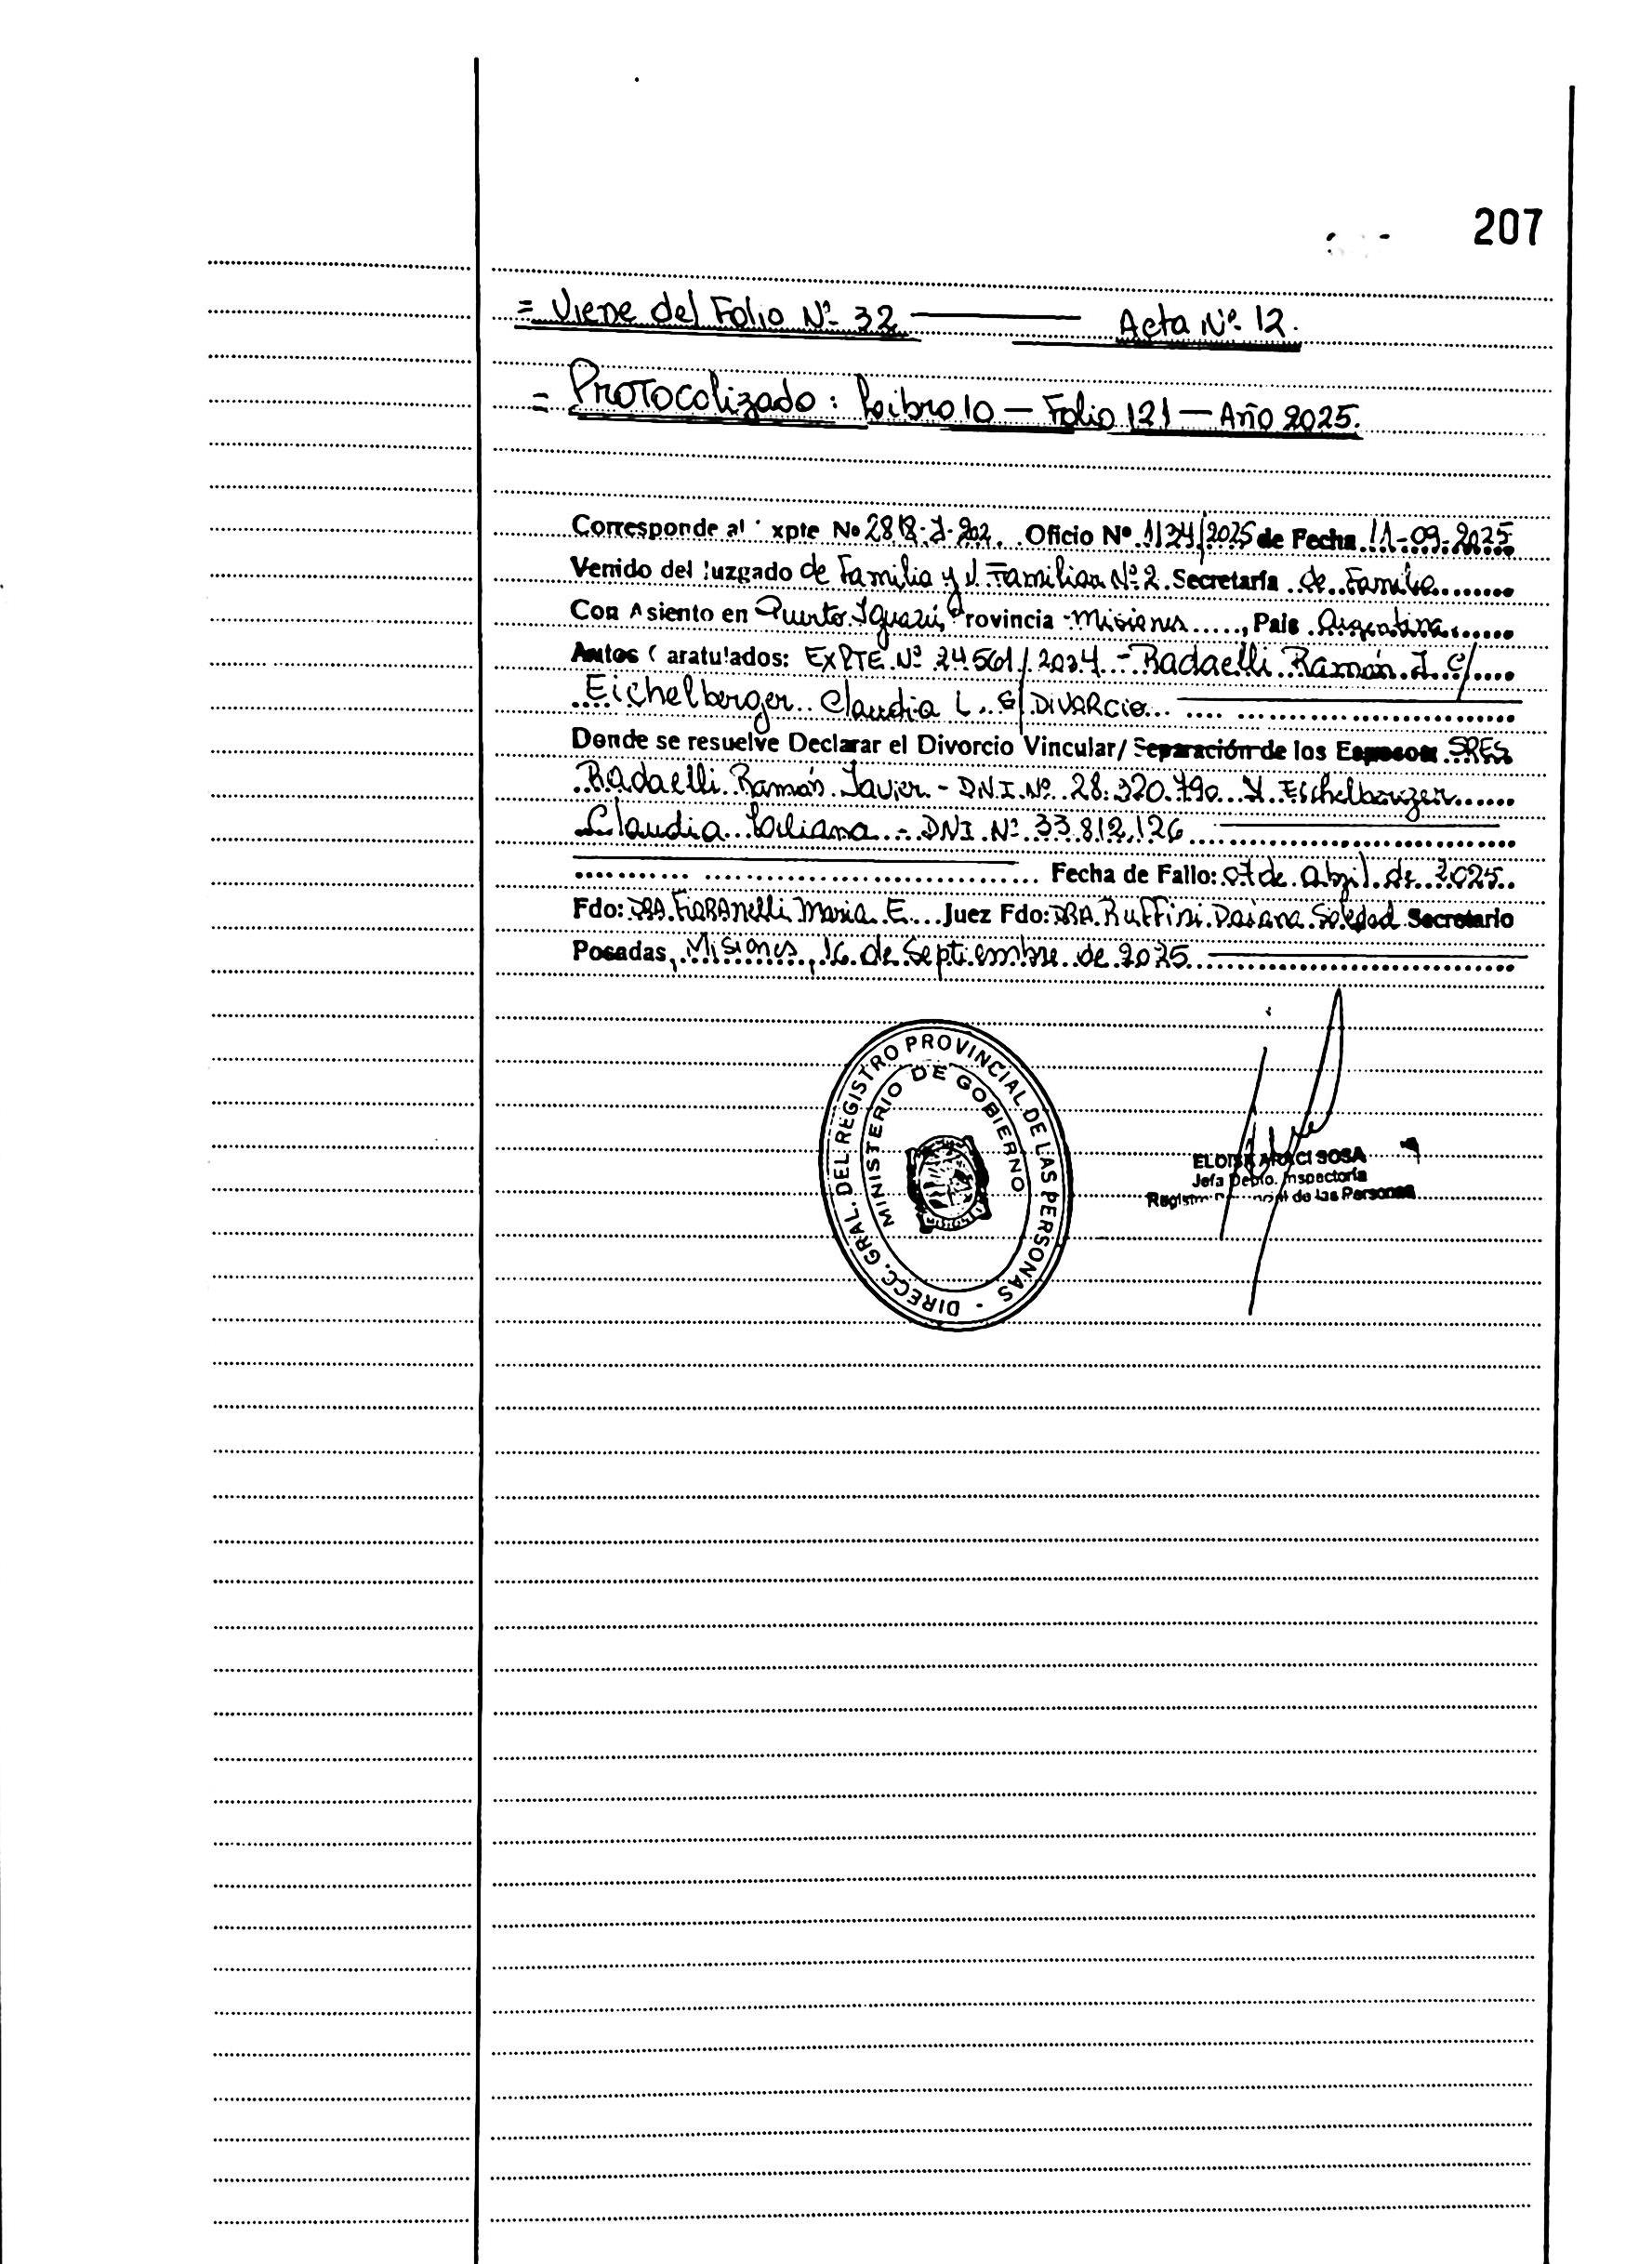 207
= Viene del Folio Nº 32 Acta Nº 12.
= Protocolizado: Libro 10 - Folio 121 - Año 2025.
Corresponde al xpte No Oficio Nº 1124/2025 de Fecha 11-09-2025
Venido del Juzgado de Familia y V. Familiar Nº 2 Secretaría de Familia
Con Asiento en Puerto Iguazú, Provincia Misiones, Pais Argentina
Autos Caratulados: EXPTE Nº 24561/2024 - Radaelli Ramón J. C/
Eichelberger Claudia L. S/ Divorcio
Donde se resuelve Declarar el Divorcio Vincular/ Separación de los Esposos SRES
Radaelli Ramón Javier - DNI Nº 28.320.790 Y Eichelberger
Claudia Liliana - DNI Nº 33.812.126
Fecha de Fallo: 07 de abril de 2025
Fdo: DRA. Maria E. Juez Fdo: DRA. Ruffini Daiana Soledad Secretario
Posadas, Misiones, 16 de Septiembre de 2025
DIRECC. GRAL. DEL REGISTRO PROVINCIAL DE LAS PERSONAS -
MINISTERIO DE GOBIERNO
ELOISA ARACI SOSA
Jefa Depto. Inspectoría
de las Personas